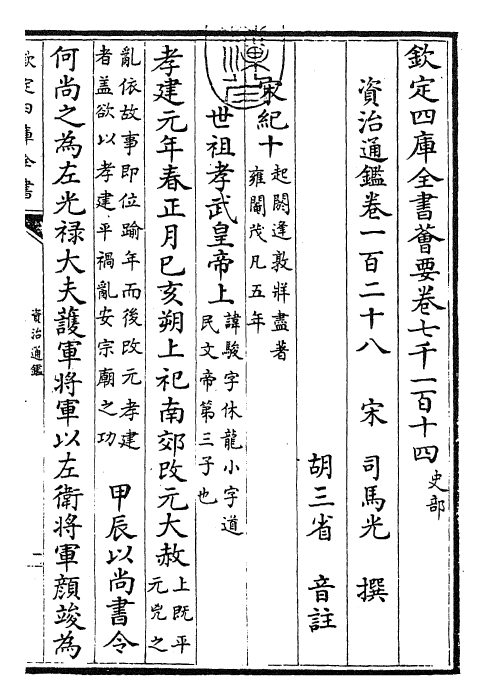 欽定四庫全書薈要卷七千一百十四
史部
資治通鑑卷一百二十八　宋　司馬光　撰
胡三省　音註
宋紀十
起閼逢敦牂盡著
雍閹茂凡五年
世祖孝武皇帝上
諱駿字休龍小字道
民文帝第三子也
孝建元年春正月已亥朔上祀南郊改元大赦
上既平
元兇之
亂依故事即位踰年而後改元孝建
者盖欲以孝建平禍亂安宗廟之功
甲辰以尚書令
何尚之為左光禄大夫護軍將軍以左衛將軍顔竣為
欽定四庫全書
資治通鑑